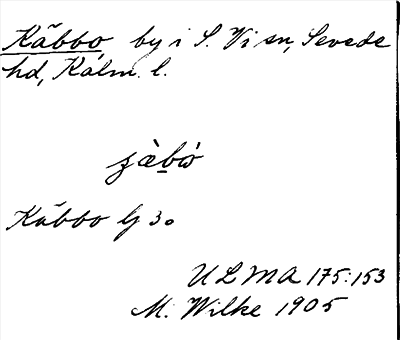 Kãbbo by i S. Vi sn, Sevede
hd, Kalm. l.
Kãbbo Lj 30
ULMA 175:153
M. Wilke 1905